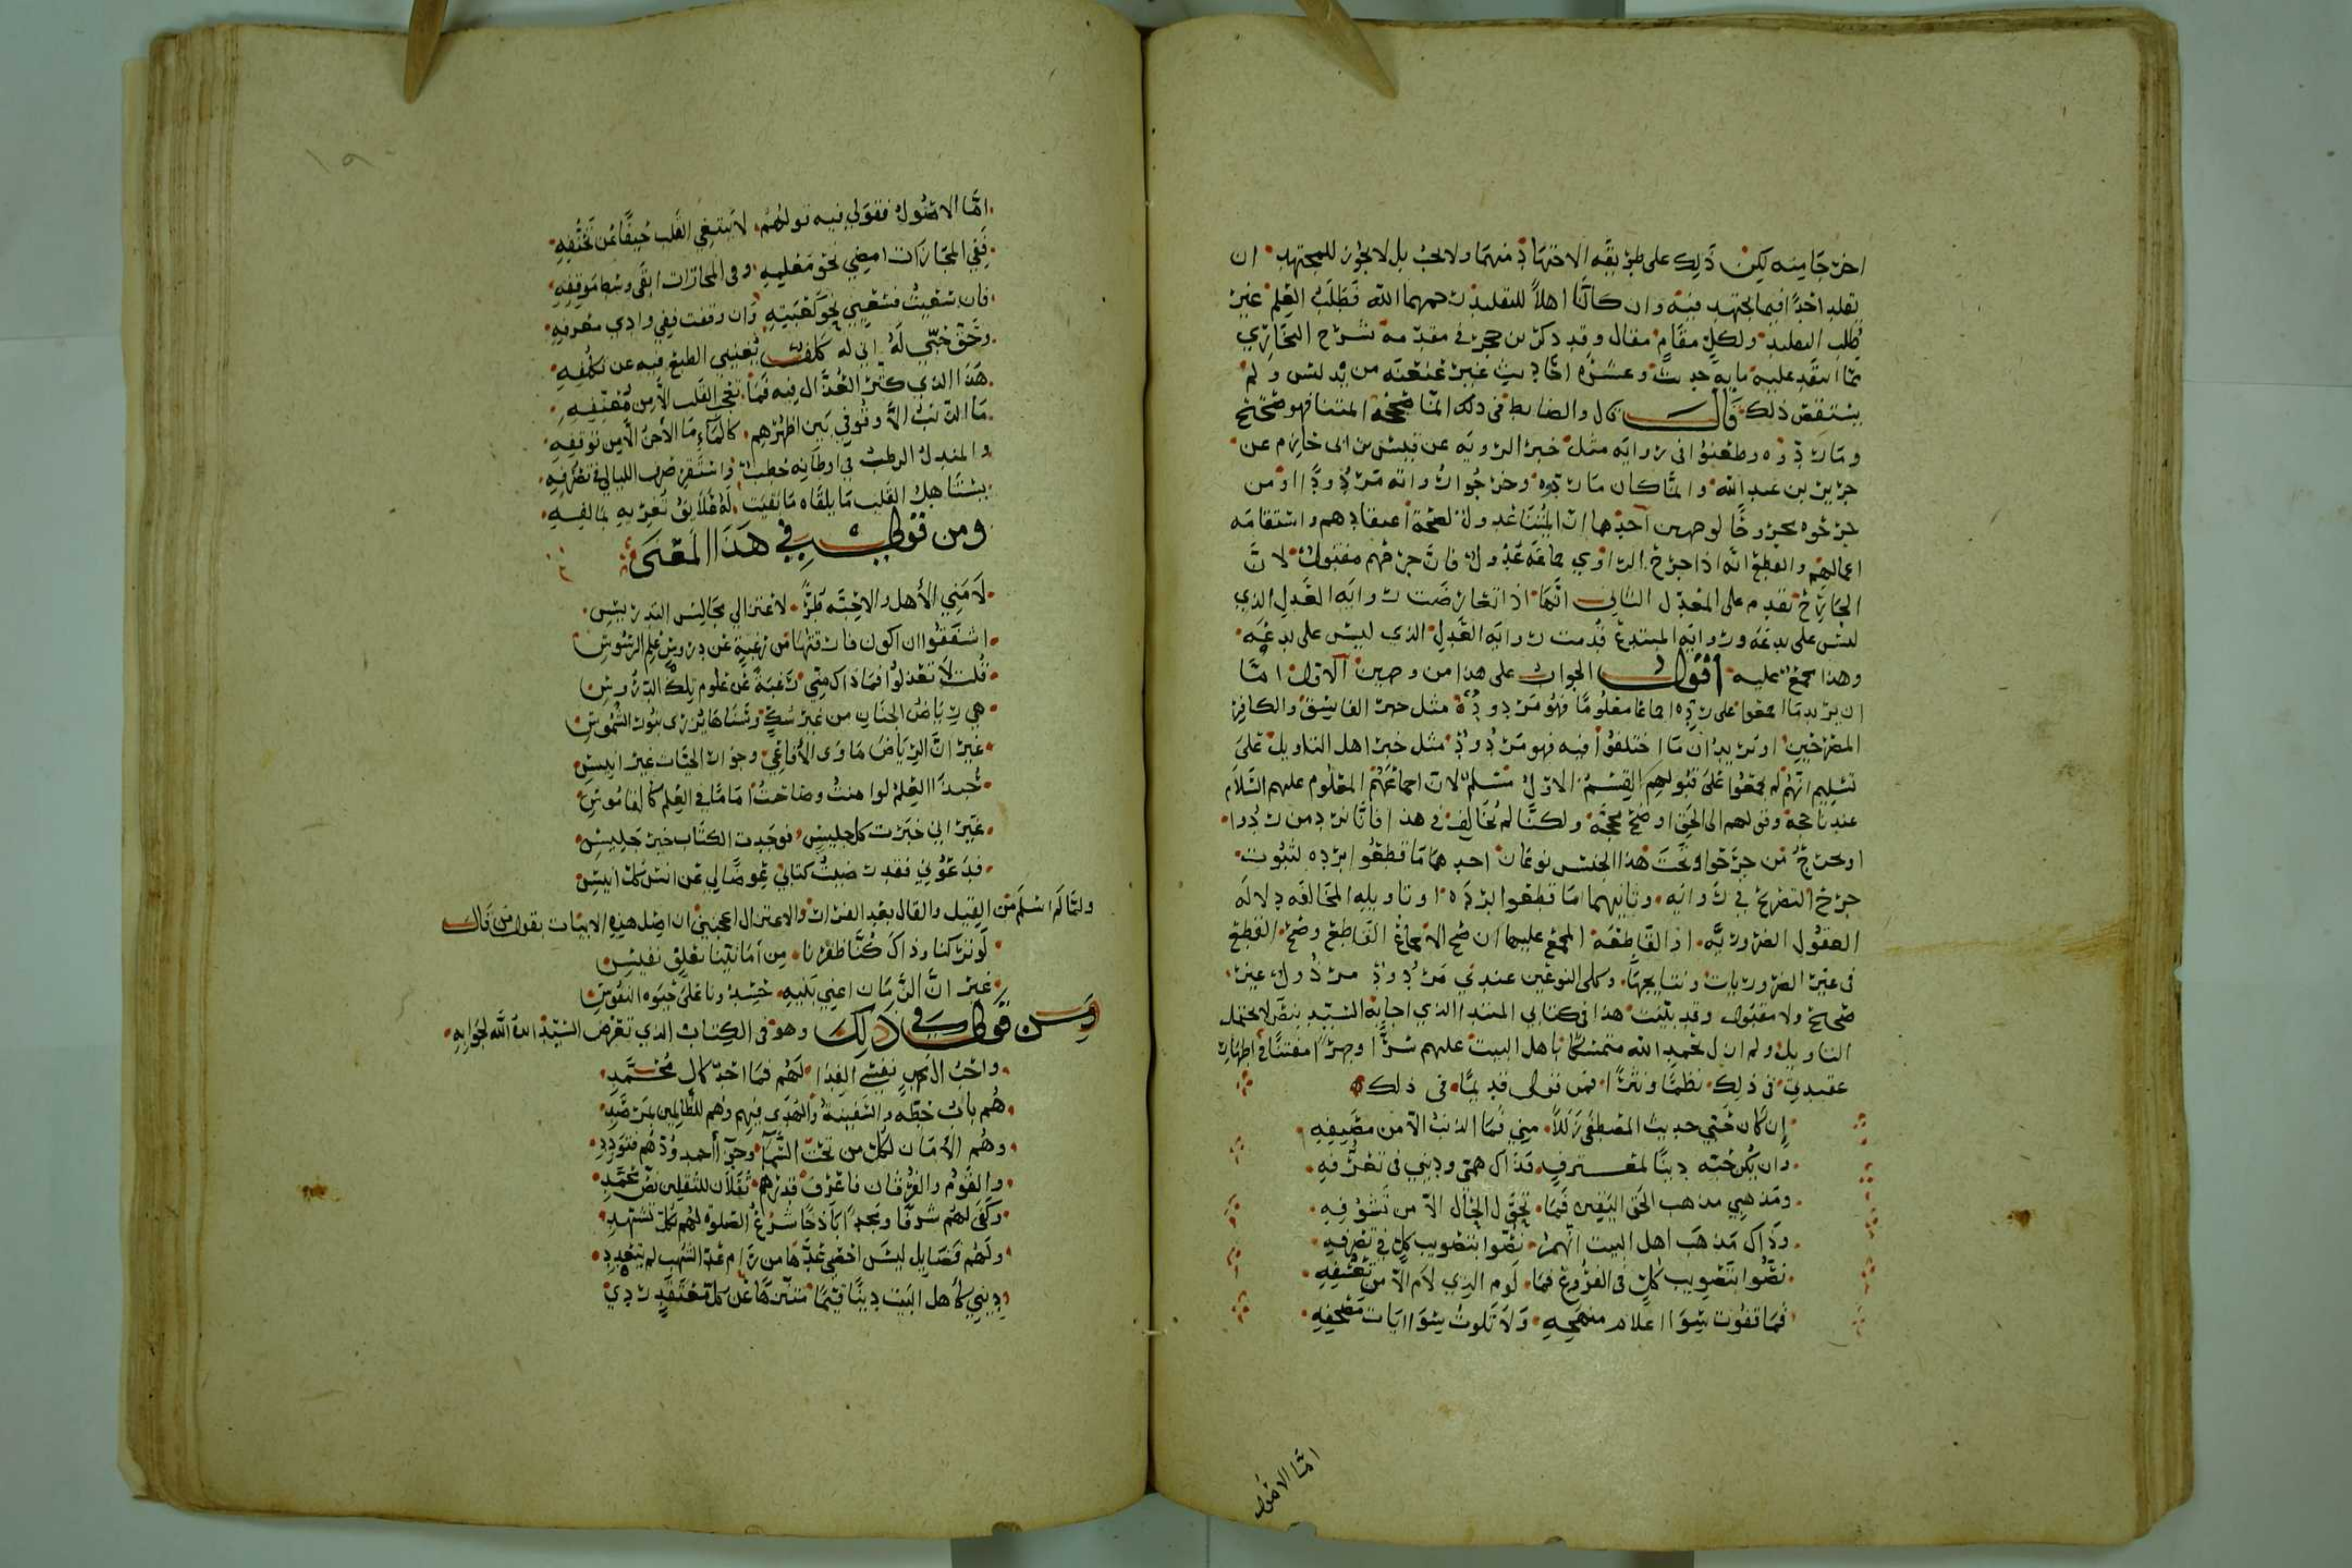 اخرجا منه لكن ذلك على طريقه الاجتهاد منهما ولا يجب بل لا يجوز للمجتهد ان
يقلد احدًا فيما يجتهد فيه وان كانا اهلاً للتقليد رحمهما الله فطلب العلم غير
طلب التقليد ولكل مقام مقال وقد ذكر بن حجر في مقدمة شرح البخاري
مما انتقد عليه مايه حديث وعشره احاديث غير عنعنه من يدلس ولم
يستنقص ذلك قال قال والضابط في ذلك ان ما صححه ائمتنا فهو صحيح
وما ردوه وطعنوا في روايه مثل خبر الرويه عن قيس بن ابى حازم عن
جرير بن عبد الله والما كان ما ردوه وجرحوا رواته مردودًا ومن
جرحوه مجروحًا لوجهين احدها ان ايمتنا عدول لصحة اعتقادهم واستقامه
اعمالهم والقطع انه اذا جرح الراوي جماعه عدول فان جرحهم مقبول لان
الجارح يقدم على المعدل الثاني انها اذا تعارضت روايه العدل الذي
ليس على بدعه وروايه المبتدع قدمت روايه العدل الذي ليس على بدعه
وهذا مجمع عليه اقول الجواب على هذا من وجهين الاول اما
ان يريد ما اجمعوا على رده اجماعا معلومًا فهو مردود مثل خبر الفاسق والكافر
المصرحين او يريد ان ما اختلفوا فيه فهو مردود مثل خبر اهل التاويل على
تسليم انهم لم يجمعوا على قبولهم القسم الاول مسلم لان اجماعهم المعلوم عليهم السلام
عندنا حجه وقولهم الى الحق اوضح محجه ولكنا لم نخالف في هذا فانا نرد من ردوا
او نجرح من جرحوا وتحت هذا الجنس نوعان احدهما ما قطعوا برده لثبوت
جرح التصريح في رواته وثانيهما ما قطعوا برده او تاويله المخالفه دلاله
العقول الضروريه اذ القاطعه المجمع عليها ان صح الاجماع القاطع وصح القطع
في غير الضروريات ونتايجها وكلى النوعين عندي مردود مرذول غير
صحيح ولا مقبول وقد بينت هذا في كتابي المبتدا الذي اجابه السيد بنص لا يحتمل
التاويل ولم ازل بحمد الله متمسكًا باهل البيت عليهم سرًا وجهرًا مفتنًا في اظهار
عقيدتي في ذلك نظمًا ونثرًا فمن قولى قديمًا في ذلك
إن كان حبي حديث المصطفى زللاً مني فما الذنب الا من مصنفه
وان يكن حبه دينًا لمعترف فذاك همي وديني في تعرفه
ومذهبي مذهب الحق اليقين فما تحول الحال الا من تشوفه
وذاك مذهب اهل البيت انهم نصوا بتصويب كل في تصرفه
نصوا بتصويب كل في الفروع فما لوم الذي لام الا من تعسفه
فما قفوت سوا اعلام منهجه ولا تلوت سوا ايات مصحفه
اما الاصول
اما الاصول فقولي فيه قولهم لا يبتغي القلب حيفًا عن تحنفه
ففي المجازات امضي نحو معلمه وفي المحازات ابقى وسط موقفه
فان سعيت فسعيي نحو كعبته وان وقفت ففي وادي معرفه
وحق حبي له اني له كلف يغنيي الطبع فيه عن تكلفه
هذا الذي كثر العذال فيه فما تعجب القلب الا من معنفه
ما الذنب الا وقوفي بين اظهرهم كالماء ما الأجن الا من توقفه
والمندل الرطب في اوطانه حطب واستقر صرف الليالي في تصرفه
يستاهل القلب ما يلقاه ما بقيت له علايق تغريه بمالفه
ومن قولي في هذا المعنى
لامني الأهل والاحبه طرًّا لاعتزالي مجالس التدريس
اشفقوا ان اكون فارقتها من رغبة عن دروس علم الرسوس
قلت لا تعذلوا فما ذاك مني رغبة عن علوم تلك الدروس
هي رياض الجنان من غير شك وسناها يزري بنور الشموس
غير ان الرياض ماوى الأفاعي وجوار الحيات غير انيس
حبذا العلم لو امنت وصاحبت امامًا في العلم كالقاموس
غير اني خبرت كل جليس فوجدت الكتاب خير جليس
فدعوني فقد رضيت كتابي عوضًا لي عن انس كل انيس
ولما لم اسلم من القيل والقال بعد الفرار والاعتزال اعجبني ان اصل هذه الابيات بقول من قال
لو تركنا وذاك كنا ظفرنا من امانينا بعلق نفيس
غير ان الزمان اعني بنيه حسدونا على حيوه النفوس
ومن قولي في ذلك وهو في الكتاب الذي تعرض السيد ايده الله لجوابه
واحب ال محمد نفسي الفدا لهم فما احد كال محمد
هم باب حطه والسفينة والهدى فيهم وهم للظالمين بمرصد
وهم الأمان لكل من تحت السما وجزا أحمد ودهم فتودد
والقوم والقرفان فاعرف قدرهم ثقلان للثقلين نص محمد
وكفى لهم شرفًا ومجدًا باذخًا شرع الصلوة لهم بكل تشهد
ولهم فضايل ليس احصي عدها من رام عد الشهب لم يتعدد
وديني كاهل البيت دينًا قيمًا متنزهًا عن كل معتقد ردي